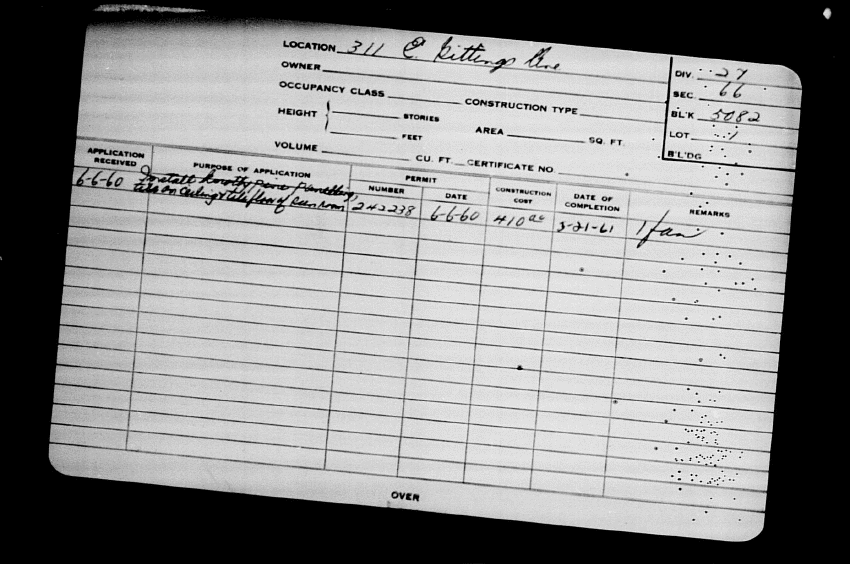 LOCATION 311 E. Gittings Ave
OWNER
OCCUPANCY CLASS CONSTRUCTION TYPE
HEIGHT STORIES
FEET
AREA SQ. FT.
VOLUME CU. FT. CERTIFICATE NO.
DIV. 27
SEC 66
BL'K 5082
LOT 1
B'L'DG
APPLICATION RECEIVED
PURPOSE OF APPLICATION
PERMIT
NUMBER DATE
CONSTRUCTION COST
DATE OF COMPLETION
REMARKS
6-6-60 Install knotty pine panelling,
tile on ceiling & tile floor of sunroom 242238 6-6-60 410 00 3-21-61 1 fam
OVER